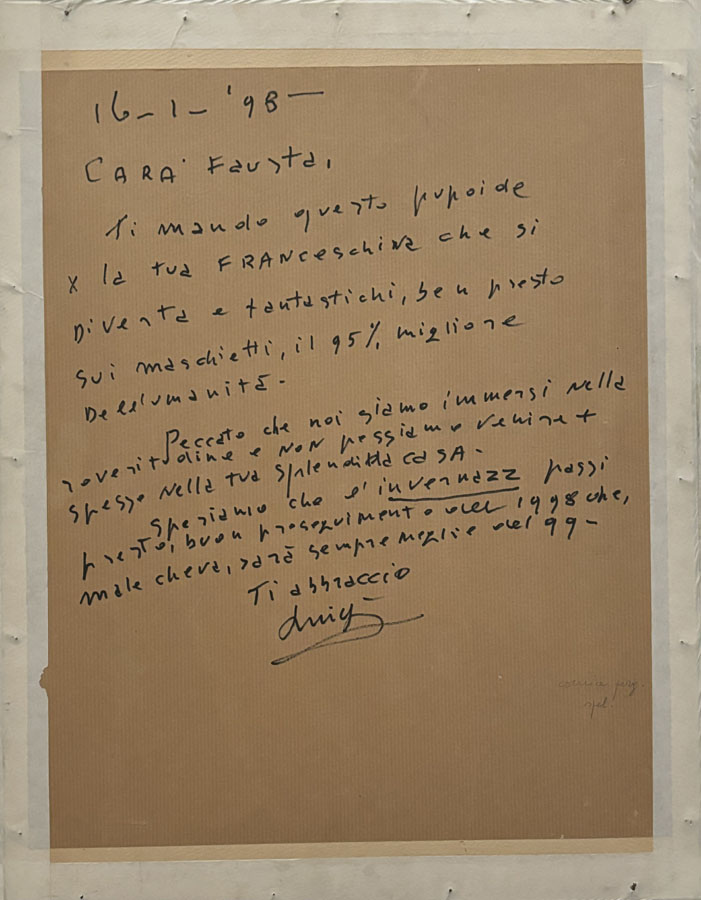 16-1-'98-
CARA' Fausta,
Ti mando questo pupoide
x la tua FRANCeschina che si
Diventa e fantastichi, ben presto
sui maschietti, il 95% migliore
Dell'umanità.
Peccato che noi siamo immersi nella
e NON possiamo venire +
spesso nella tua splenditta CASA.
speriamo che l'invernazz passi
presto, buon proseguimento del 1998 che,
male che va, sarà sempre meglio del 99-
Ti abbraccio
Luigi